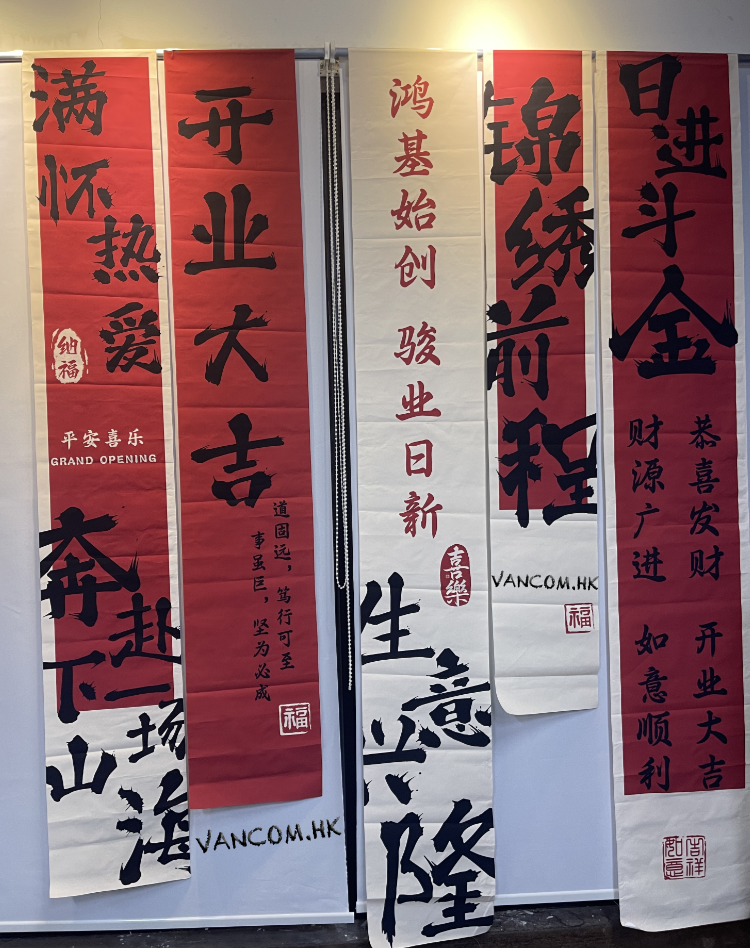 满怀热爱
纳福
平安喜乐
GRAND OPENING
奔赴下一场山海
开业大吉
道固远，笃行可至
事虽巨，坚为必成
福
VANCOM.HK
鸿基始创 骏业日新
喜樂
生意兴隆
锦绣前程
VANCOM.HK
福
日进斗金
恭喜发财 开业大吉
财源广进 如意顺利
吉祥如意